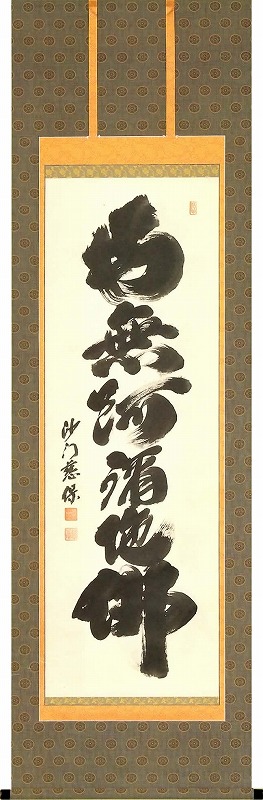 南無阿彌陀佛
沙门慈保